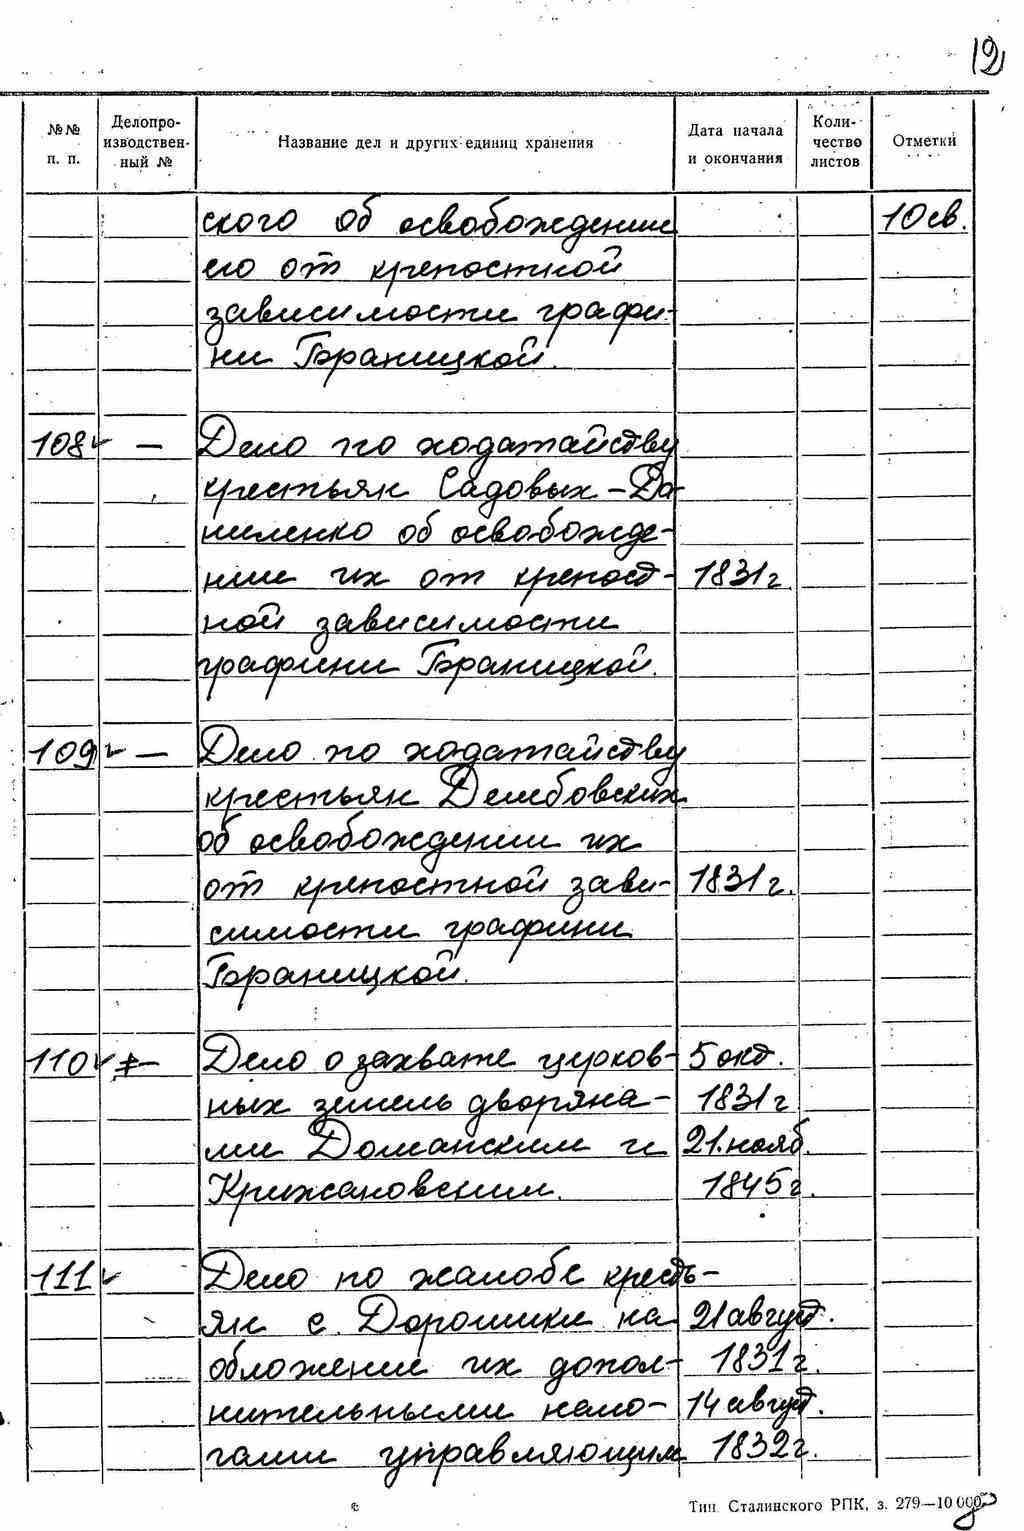 12
№№ п. п. Делопроизводствен-ный № Название дел и других единиц хранения Дата начала и окончания Коли-чество листов Отметки
ского об освобождении 10 св.
его от крепостной
зависимости графи-
ни Браницкой.
108 — Дело по ходатайству
крестьян Садовых - Да-
ниленко об освобожде-
нии их от крепост- 1831 г.
ной зависимости
графини Браницкой.
109 — Дело по ходатайству
крестьян Дембовских
об освобождении их
от крепостной зави- 1831 г.
симости графини
Браницкой.
110 — Дело о захвате церков- 5 окт.
ных земель дворяна- 1831 г
ми Доманским и 21. нояб.
Крижановским. 1845 г.
111 Дело по жалобе кресть-
ян с. Дорошики на 21 август.
обложение их допол- 1831 г.
нительными нало- 14 август.
гами управляющим 1832 г.
Тип. Сталинского РПК, з. 279—10 000